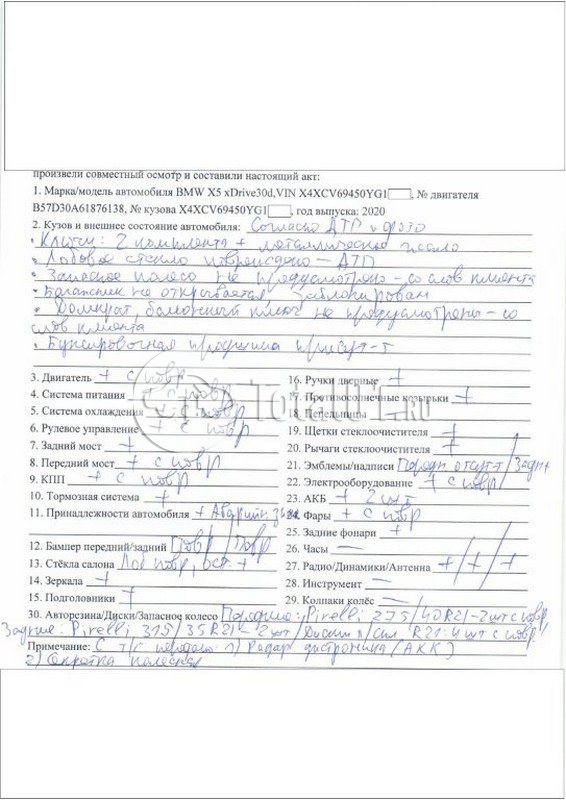 произвели совместный осмотр и составили настоящий акт:
1. Марка/модель автомобиля BMW X5 xDrive30d,VIN X4XCV69450YG1, № двигателя
B57D30A61876138, № кузова X4XCV69450YG1, год выпуска: 2020
2. Кузов и внешнее состояние автомобиля: Согласно ДТП и фото
• Ключи: 2 комплекта + металлическое
• Лобовое стекло повреждено – ДТП
• Запасное колесо не предусмотрено – со слов клиента
• Багажник не открывается, заблокирован
• Домкрат, балонный ключ не предусмотрены – со
слов клиента
• Буксировочная проушина присут-т
3. Двигатель + с повр
4. Система питания + с повр
5. Система охлаждения + с повр
6. Рулевое управление + с повр
7. Задний мост +
8. Передний мост + с повр
9. КПП + с повр
10. Тормозная система +
11. Принадлежности автомобиля + Аварийн. знак
12. Бампер передний/задний Повр / Повр
13. Стёкла салона Лоб повр, ост +
14. Зеркала +
15. Подголовники +
16. Ручки дверные +
17. Противосолнечные козырьки +
18. Пепельницы —
19. Щетки стеклоочистителя +
20. Рычаги стеклоочистителя +
21. Эмблемы/надписи Передн отсут-т / Задн +
22. Электрооборудование + с повр
23. АКБ + 2 шт
24. Фары + с повр
25. Задние фонари +
26. Часы —
27. Радио/Динамики/Антенна +/+/+
28. Инструмент —
29. Колпаки колёс —
30. Авторезина/Диски/Запасное колесо Передние: Pirelli 275/40R21-2шт с повр
Задние: Pirelli 315/35R21-2шт/Диски л/спл. R21: 4 шт с повр
Примечание: С т/с передано 1) Радар дистроника (АКК)
2)
TOTAUT.RU